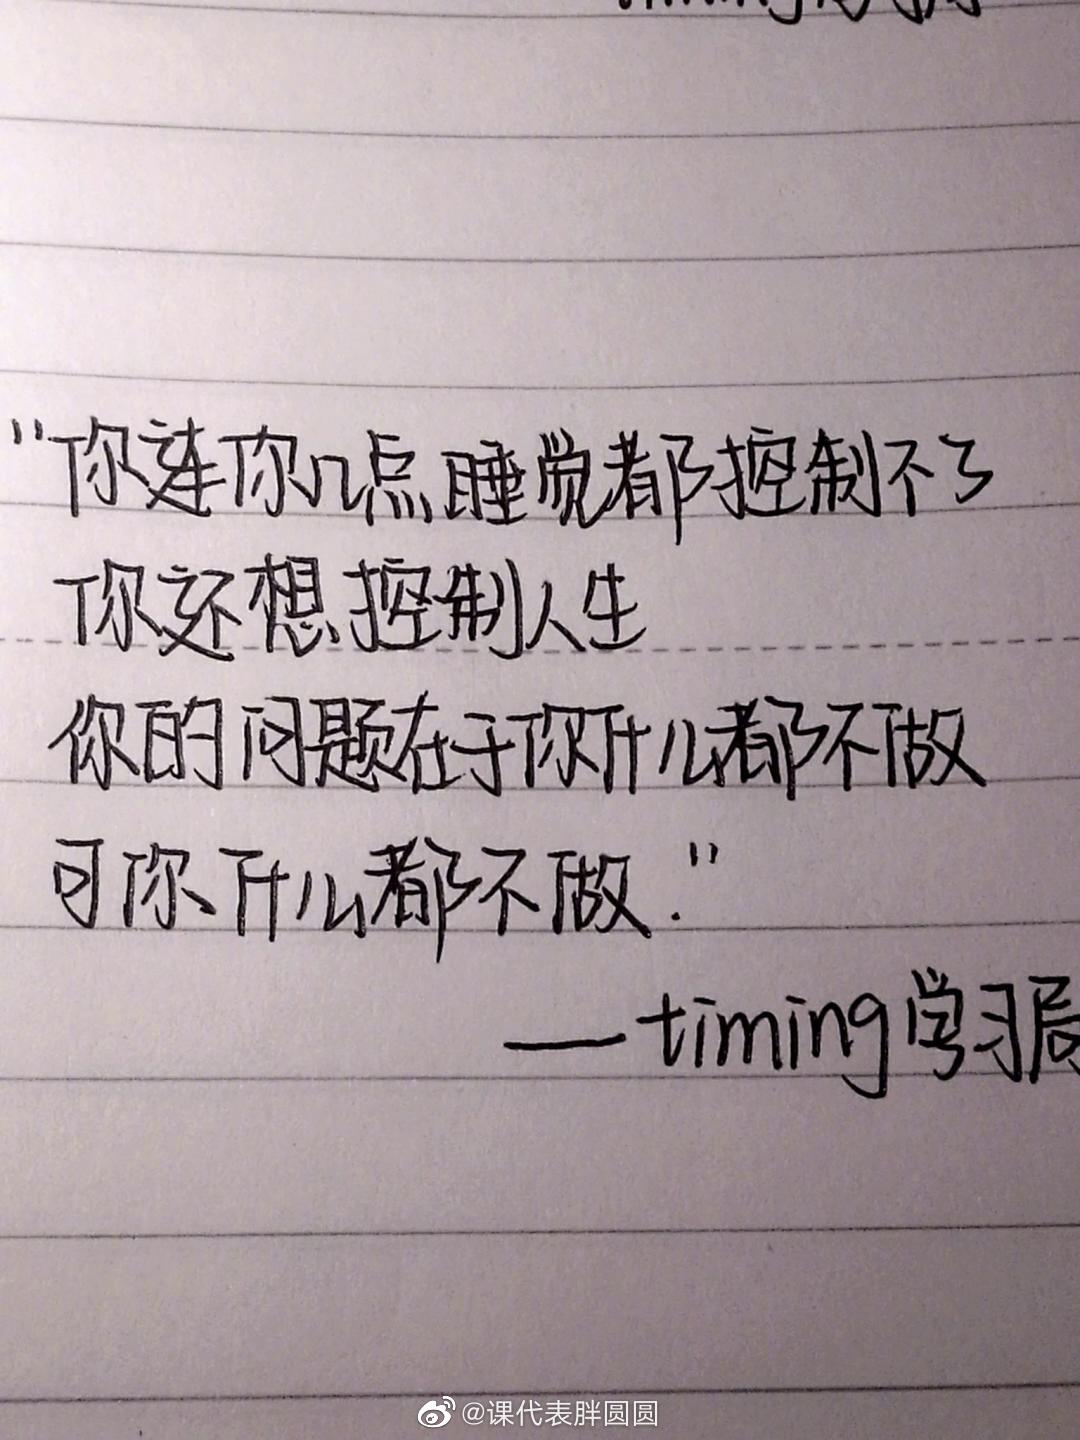 “你连你几点睡觉都控制不了
你还想控制人生
你的问题在于你什么都不做
可你什么都不做.”
—timing学习局
@课代表胖圆圆